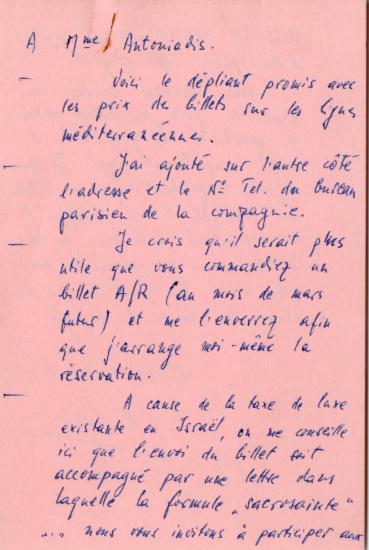 A Mme Antoniadis.
— Voici le dépliant promis avec
les prix des billets sur les lignes
méditerranéennes.
— J'ai ajouté sur l'autre côté
l'adresse et le No Tel. du bureau
parisien de la compagnie.
— Je crois qu'il serait plus
utile que vous commandiez un
billet A/R (au mois de mars
futur) et me l'enverrez afin
que j'arrange moi-même la
réservation.
— A cause de la taxe de luxe
existante en Israël, on me conseille
ici que l'envoi du billet soit
accompagné par une lettre dans
laquelle la formule „sacrosainte"
„... nous vous invitons à participer aux